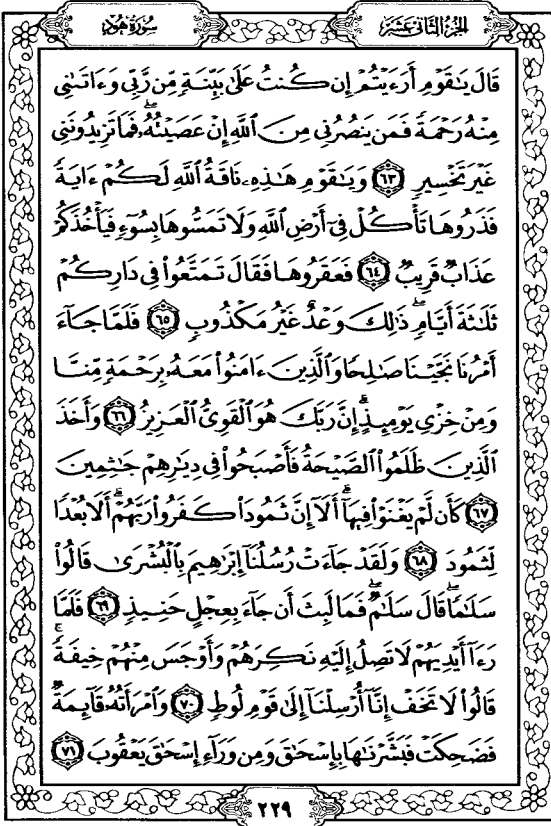 الجزء الثاني عشر
سورة هود
قَالَ يَٰقَوۡمِ أَرَءَيۡتُمۡ إِن كُنتُ عَلَىٰ بَيِّنَةٖ مِّن رَّبِّي وَءَاتَىٰنِي
مِنۡهُ رَحۡمَةٗ فَمَن يَنصُرُنِي مِنَ ٱللَّهِ إِنۡ عَصَيۡتُهُۥۖ فَمَا تَزِيدُونَنِي
غَيۡرَ تَخۡسِيرٖ ٦٣ وَيَٰقَوۡمِ هَٰذِهِۦ نَاقَةُ ٱللَّهِ لَكُمۡ ءَايَةٗۖ
فَذَرُوهَا تَأۡكُلۡ فِيٓ أَرۡضِ ٱللَّهِ وَلَا تَمَسُّوهَا بِسُوٓءٖ فَيَأۡخُذَكُمۡ
عَذَابٞ قَرِيبٞ ٦٤ فَعَقَرُوهَا فَقَالَ تَمَتَّعُواْ فِي دَارِكُمۡ
ثَلَٰثَةَ أَيَّامٖۖ ذَٰلِكَ وَعۡدٌ غَيۡرُ مَكۡذُوبٖ ٦٥ فَلَمَّا جَآءَ
أَمۡرُنَا نَجَّيۡنَا صَٰلِحٗا وَٱلَّذِينَ ءَامَنُواْ مَعَهُۥ بِرَحۡمَةٖ مِّنَّا
وَمِنۡ خِزۡيِ يَوۡمِئِذٍۚ إِنَّ رَبَّكَ هُوَ ٱلۡقَوِيُّ ٱلۡعَزِيزُ ٦٦ وَأَخَذَ
ٱلَّذِينَ ظَلَمُواْ ٱلصَّيۡحَةُ فَأَصۡبَحُواْ فِي دِيَٰرِهِمۡ جَٰثِمِينَ
٦٧ كَأَن لَّمۡ يَغۡنَوۡاْ فِيهَآۗ أَلَآ إِنَّ ثَمُودَاْ كَفَرُواْ رَبَّهُمۡۗ أَلَا بُعۡدٗا
لِّثَمُودَ ٦٨ وَلَقَدۡ جَآءَتۡ رُسُلُنَآ إِبۡرَٰهِيمَ بِٱلۡبُشۡرَىٰ قَالُواْ
سَلَٰمٗاۖ قَالَ سَلَٰمٞۖ فَمَا لَبِثَ أَن جَآءَ بِعِجۡلٍ حَنِيذٖ ٦٩ فَلَمَّا
رَءَآ أَيۡدِيَهُمۡ لَا تَصِلُ إِلَيۡهِ نَكِرَهُمۡ وَأَوۡجَسَ مِنۡهُمۡ خِيفَةٗۚ
قَالُواْ لَا تَخَفۡ إِنَّآ أُرۡسِلۡنَآ إِلَىٰ قَوۡمِ لُوطٖ ٧٠ وَٱمۡرَأَتُهُۥ قَآئِمَةٞ
فَضَحِكَتۡ فَبَشَّرۡنَٰهَا بِإِسۡحَٰقَ وَمِن وَرَآءِ إِسۡحَٰقَ يَعۡقُوبَ ٧١
٢٢٩